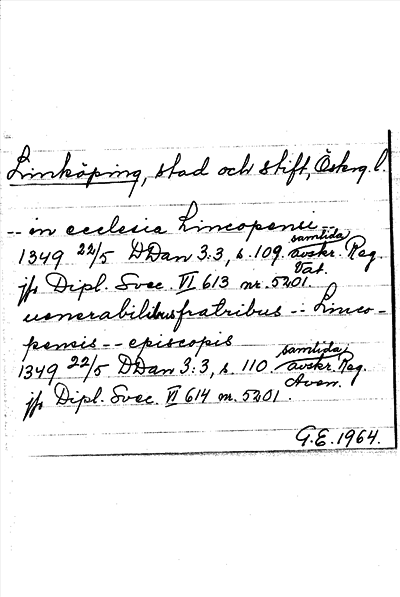 Linköping, stad och stift, Östrg. l.
-- in ecclesia Lincopensi --
1349 22/5 DDan 3:3, s. 109. samtida avskr. Reg. Vat.
jfr Dipl. Svec. VI 613 nr. 5201.
uenerabilibus fratribus -- Linco-
pensis -- episcopis
1349 22/5 DDan 3:3, s. 110 samtida avskr. Reg. Aven.
jfr Dipl. Svec. VI 614 nr. 5201.
G.E. 1964.